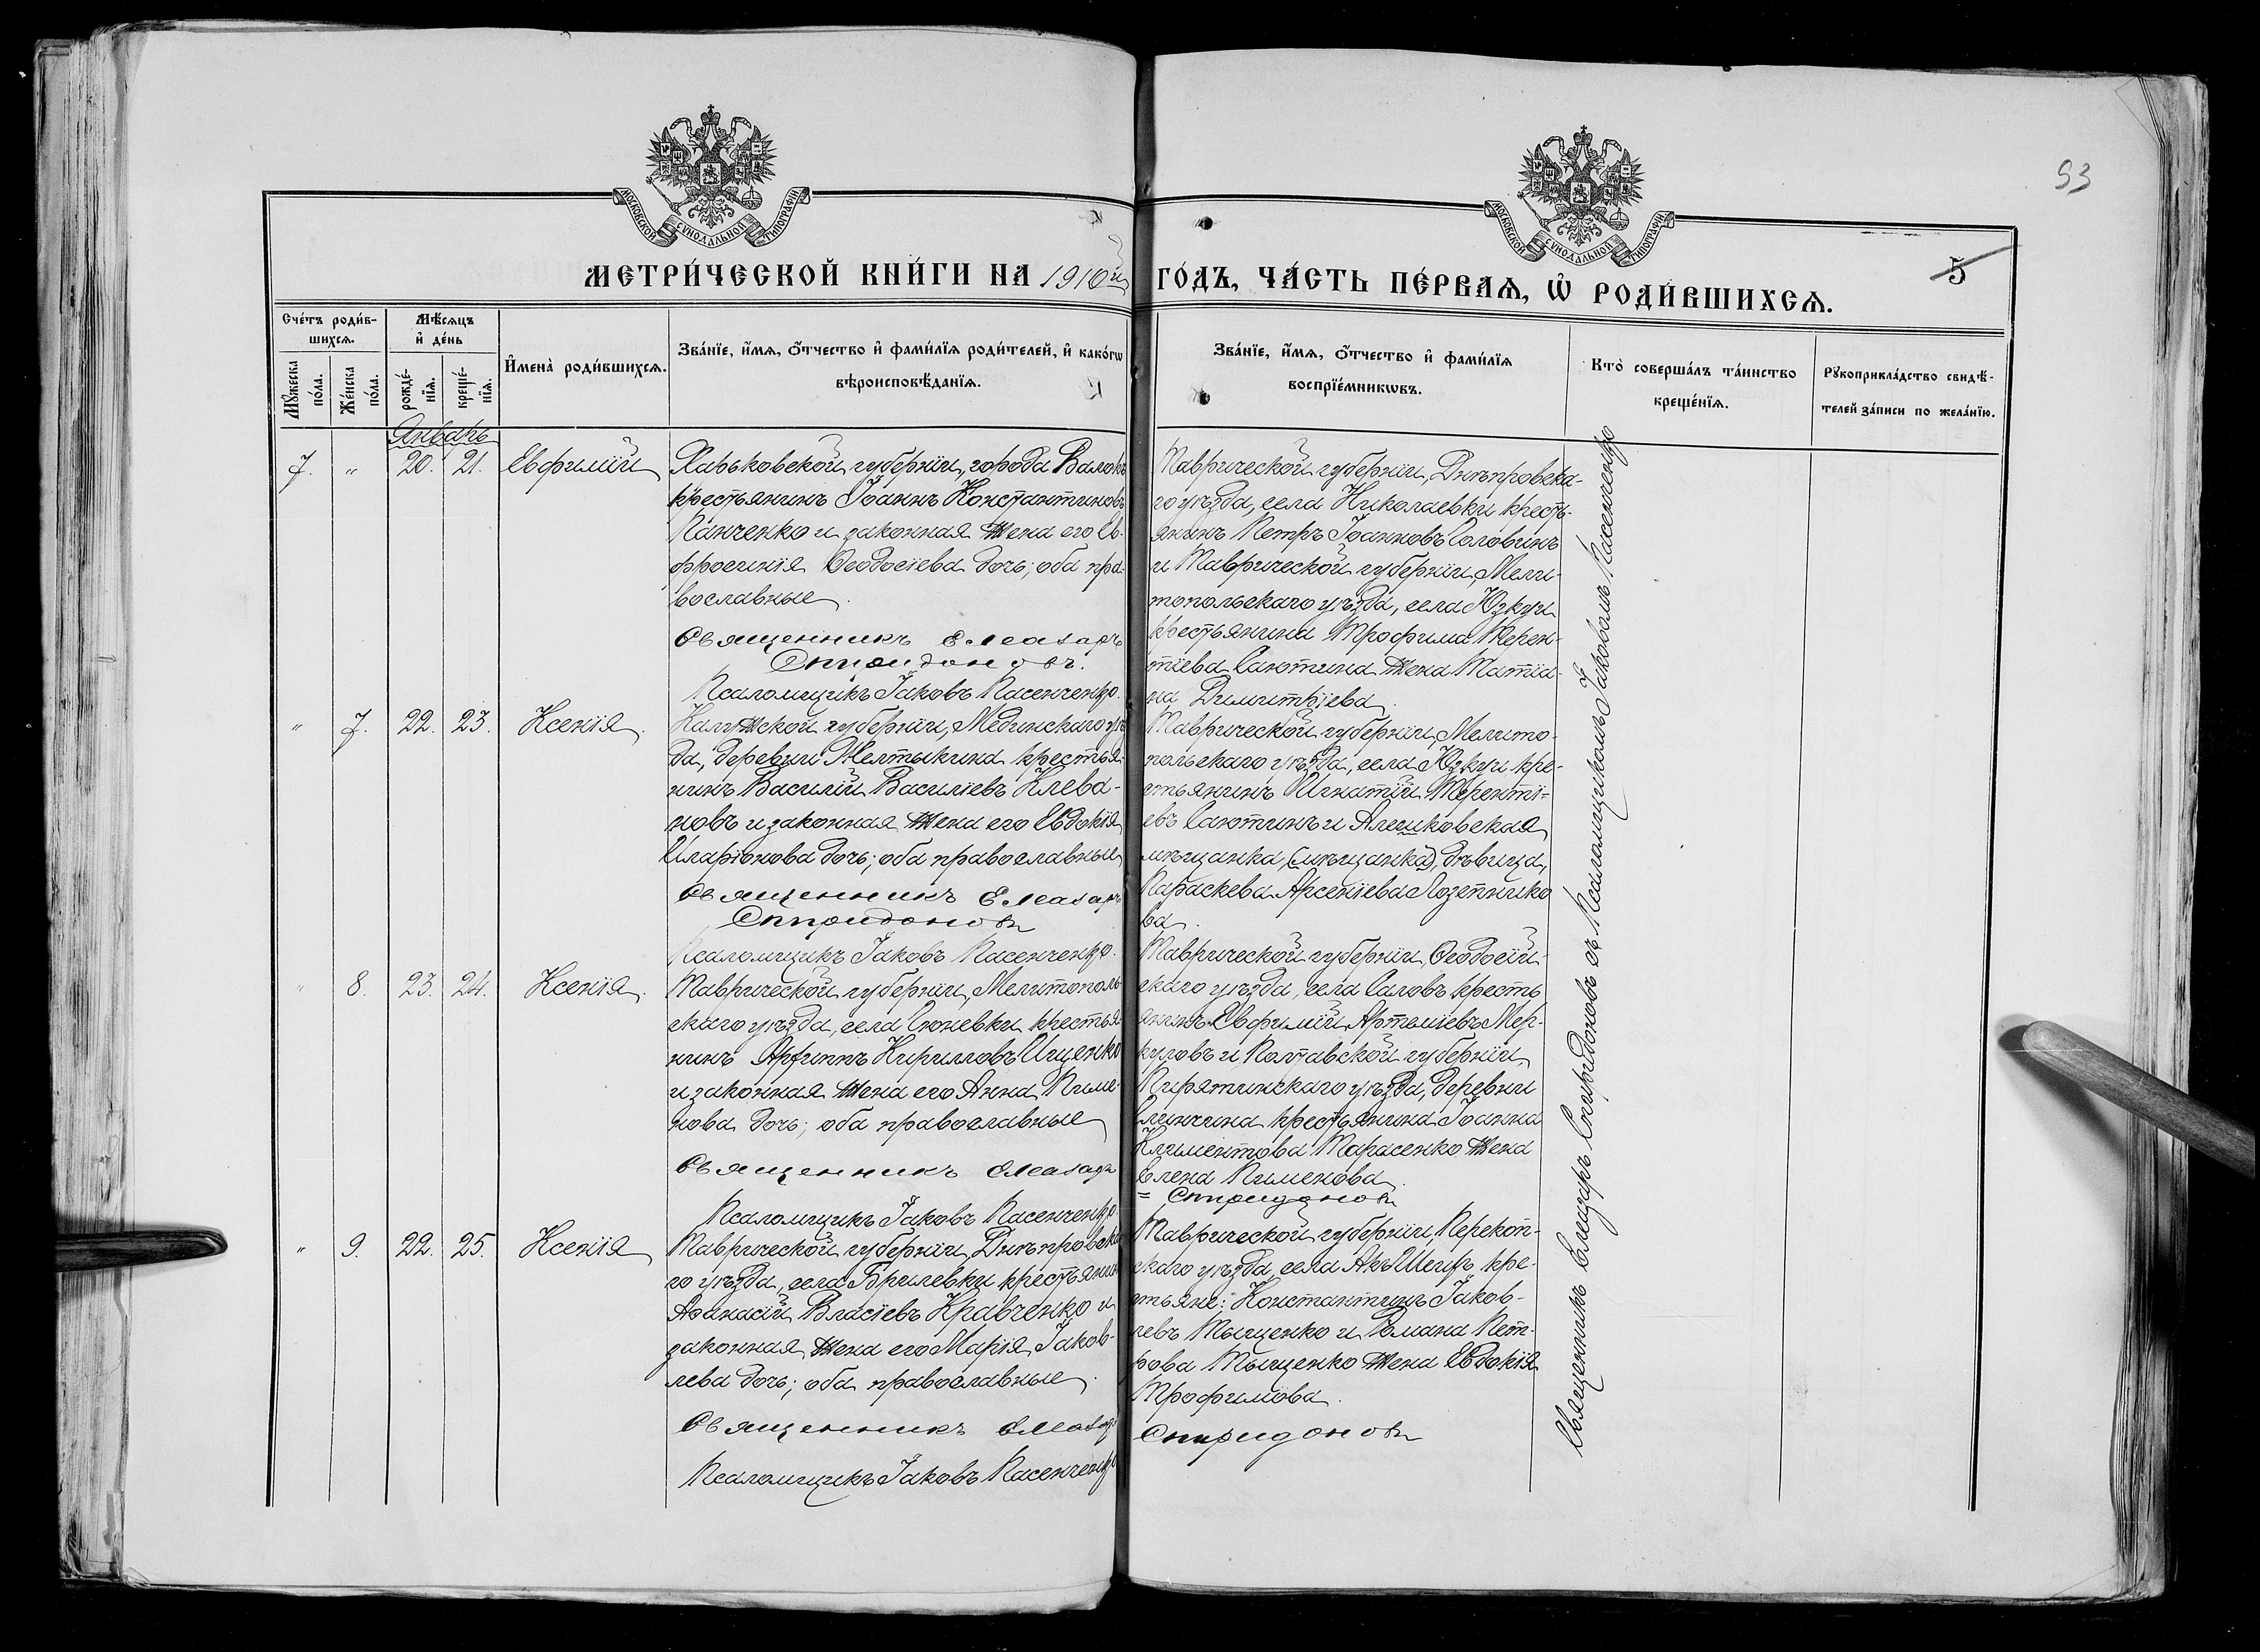 93
МОСКОВСКОЙ СѴНОДАЛЬНОЙ ТИПОГРАФІИ
МОСКОВСКОЙ СѴНОДАЛЬНОЙ ТИПОГРАФІИ
МЕТРИ́ЧЕСКОЙ КНИ́ГИ НА 1910й ГО́ДЪ, ЧА́СТЬ ПЕ́РВАѦ, Ѡ҆ РОДИ́ВШИХСѦ.
5
Сче́тъ роди́в-
шихсѧ.
Мꙋ́жеска
по́ла.
Же́нска
по́ла.
Мѣ́сѧцъ
и҆ де́нь
рожде́-
нїѧ.
креще́-
нїѧ.
И҆мена̀ роди́вшихсѧ.
Зва́нїе, и҆́мѧ, ѻ҆́тчество и҆ фами́лїѧ роди́телей, и҆ како́гѡ
вѣроисповѣ́данїѧ.
Зва́нїе, и҆́мѧ, ѻ҆́тчество и҆ фами́лїѧ
воспрїе́мникѡвъ.
Кто̀ соверша́лъ та́инство
креще́нїѧ.
Рꙋкоприкла́дство свидѣ́-
телей за́писи по жела́нїю.
Январь
7. " 20. 21. Евфимій
Харьковской губерніи, города Валокъ
крестьянинъ Іоаннъ Константиновъ
Панченко и законная жена его Ев-
фросинія Ѳеодосіева дочь; оба пра-
вославные.
Священникъ Елеазаръ
Спиридоновъ.
Псаломщикъ Іаковъ Пасенченко.
Таврической губерніи, Днѣпровска-
го уѣзда, села Николаевки кресть-
янинъ Петръ Іоанновъ Головинъ
и Таврической губерніи, Мели-
топольскаго уѣзда, села Юзкуи
крестьянина Трофима Терен-
тіева Саютина жена Татіа-
на Димитріева.
" 7. 22. 23. Ксенія.
Калужской губерніи, Медынскаго уѣз
да, деревни Желтыкина крестья-
нинъ Василій Василіевъ Клева-
новъ и законная жена его Евдокія
Иларіонова дочь; оба православные
Священникъ Елеазаръ
Спиридоновъ
Псаломщикъ Іаковъ Пасенченко.
Таврической губерніи, Мелито-
польскаго уѣзда, села Юзкуи кре-
стьянинъ Игнатій Теренті-
евъ Саютинъ и Алешковская
мѣщанка, (мѣщанка), дѣвица,
Параскева Арсеніева Лозетнико
ва.
" 8. 23. 24. Ксенія.
Таврической губерніи, Мелитополь-
скаго уѣзда, села Сюневки крестья-
нинъ Архиппъ Кирилловъ Ищенко
и законная жена его Анна Пиме-
нова дочь; оба православные
Священникъ Елеазаръ
Псаломщикъ Іаковъ Пасенченко
Таврической губерніи, Ѳеодосій-
скаго уѣзда, села Саловъ кресть
янинъ Евфимій Артеміевъ Мер-
куловъ и Полтавской губерніи,
Пирятинскаго уѣзда, деревни
крестьянина Іоанна
Климентова Тарасенко жена
Елена Пименова.
= Спиридоновъ
" 9. 22. 25. Ксенія
Таврической губерніи, Днѣпровска
го уѣзда, села Брилевки крестьянин
Аѳанасій Власіевъ Кравченко и
законная жена его Марія Іаков-
лева дочь; оба православные.
Священникъ Елеазаръ
Псаломщикъ Іаковъ Пасенченко
Таврической губерніи, Перекоп-
скаго уѣзда, села Ак-Шеихъ кре-
стьяне: Константинъ Іаков-
левъ Тыщенко и Романа Пет-
рова Тыщенко жена Евдокія
Трофимова.
Спиридоновъ
Священникъ Елеазаръ Спиридоновъ съ Псаломщикомъ Іаковомъ Пасенченко